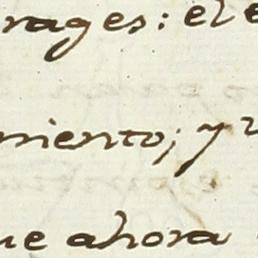 rages: el e
miento; y v
ue ahora